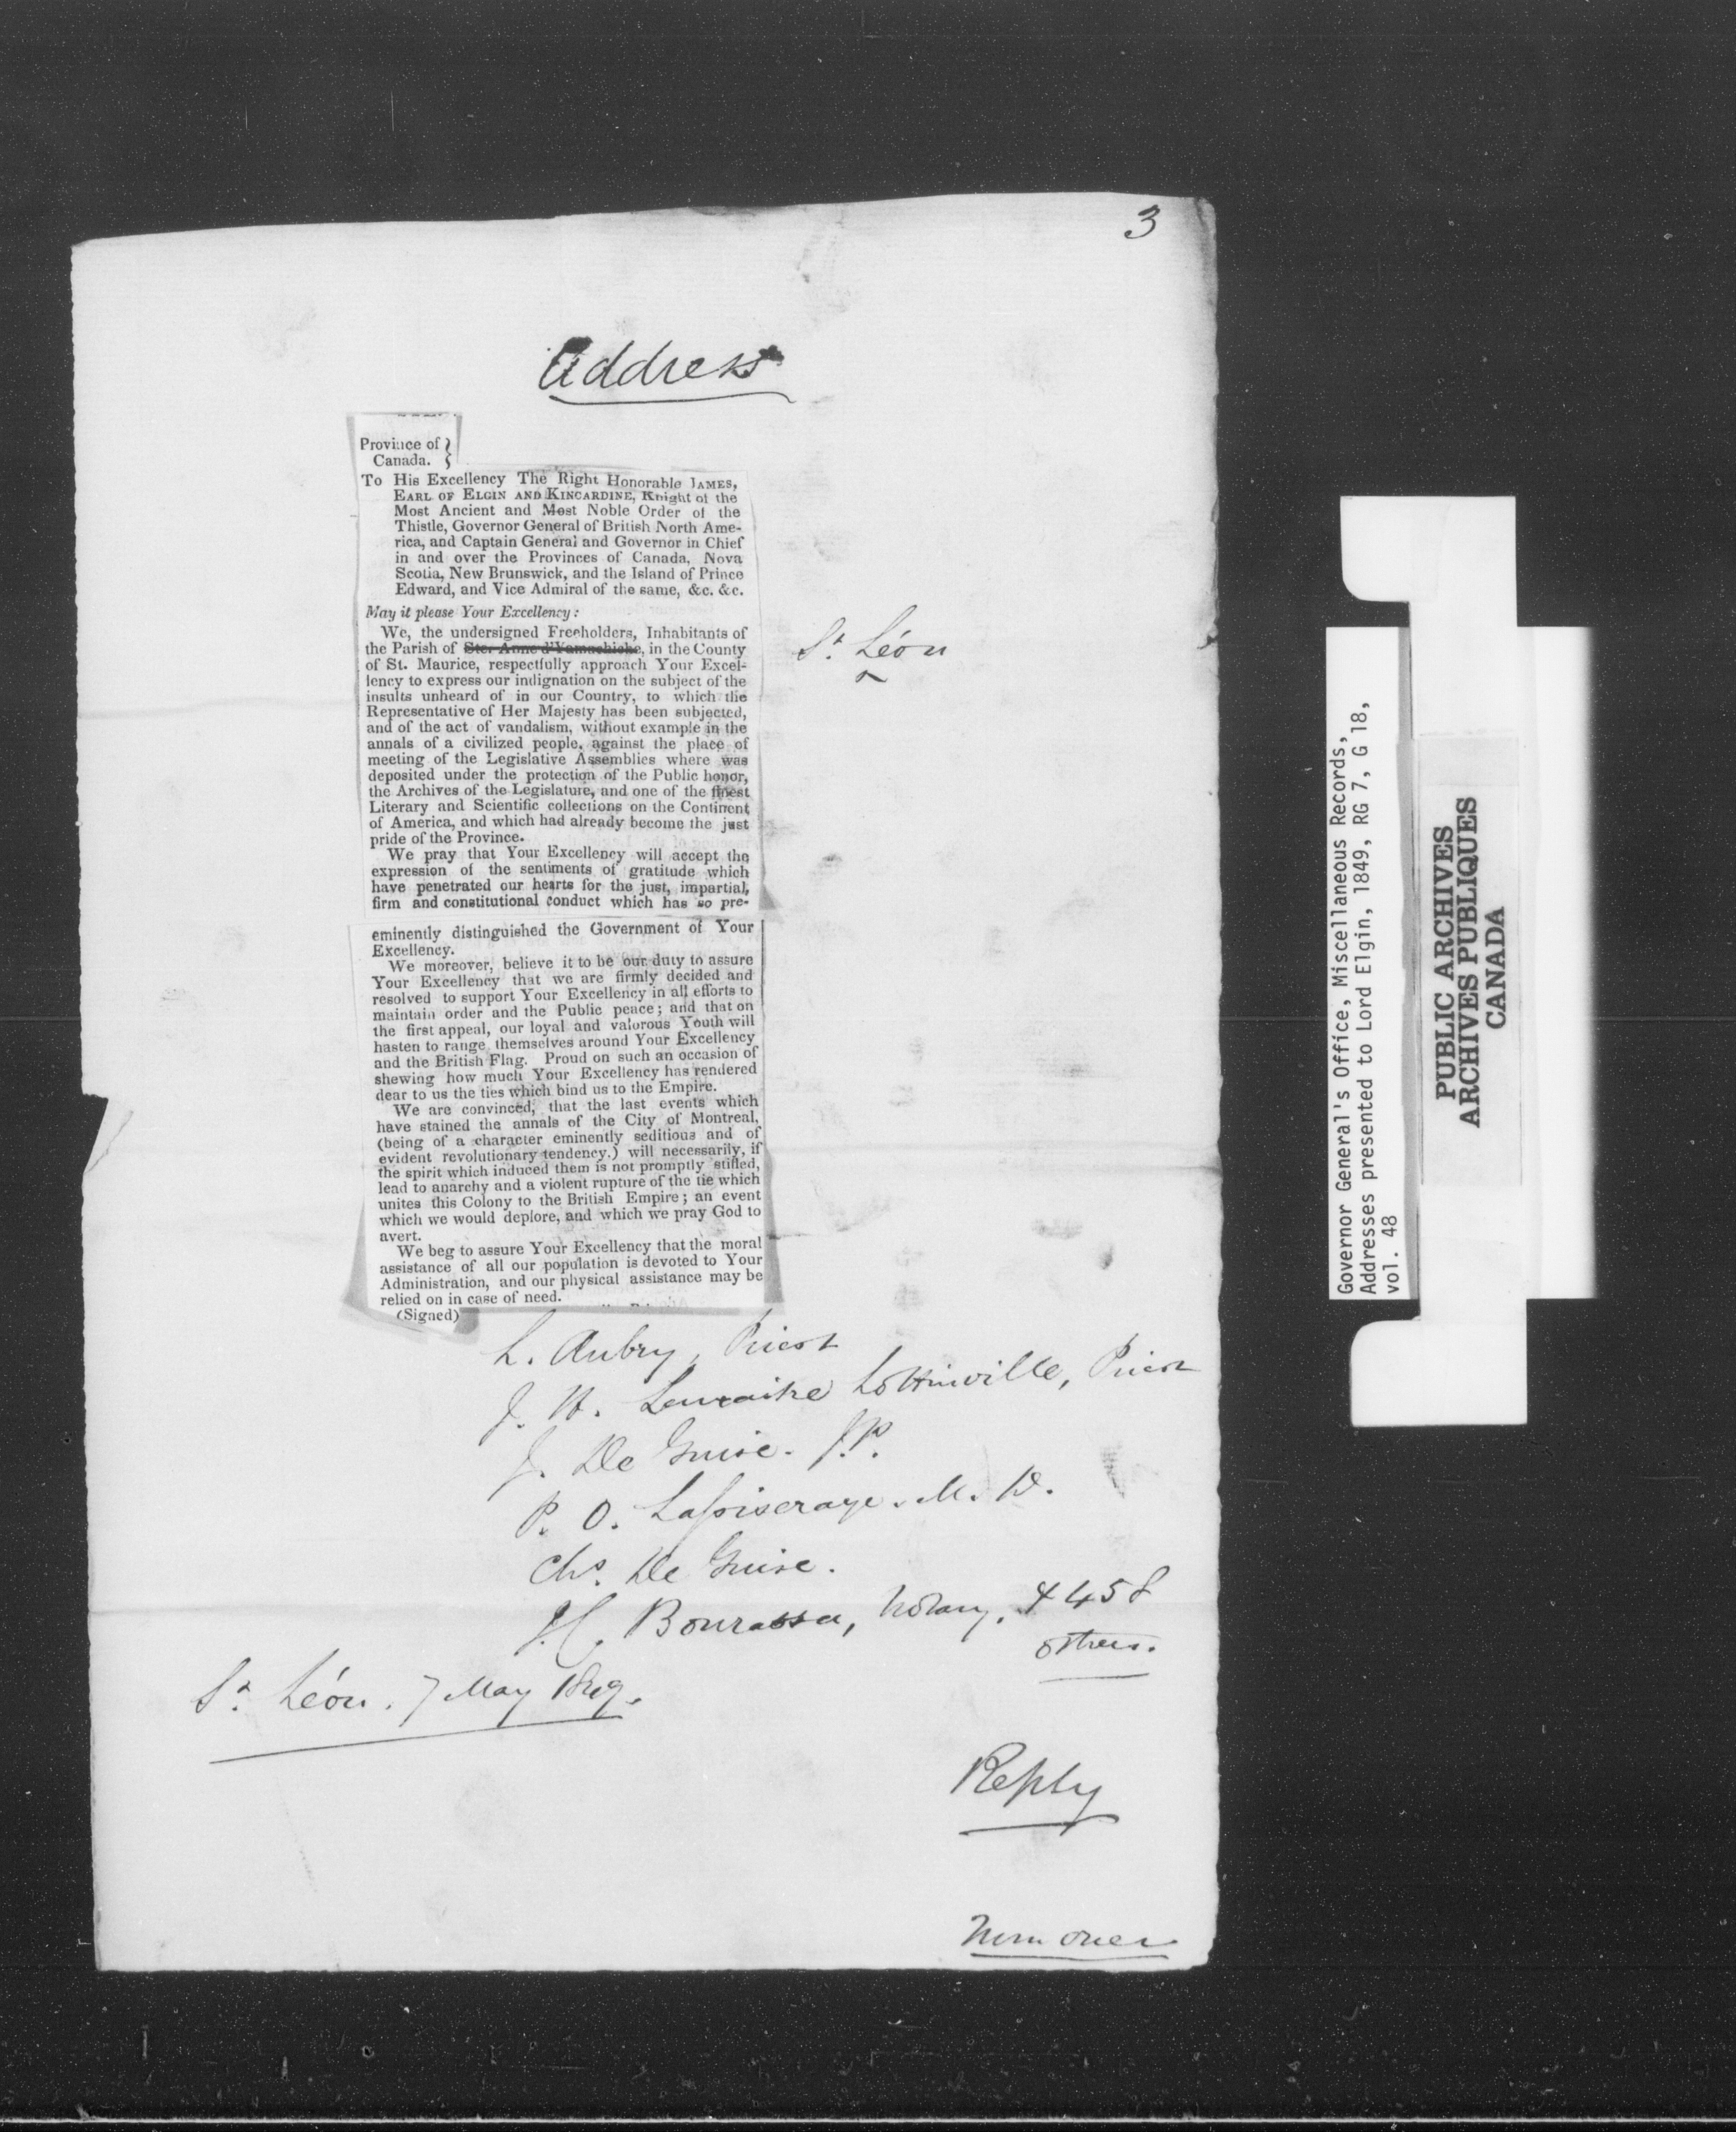 3
Address
Province of }
Canada.
To His Excellency The Right Honorable JAMES,
EARL OF ELGIN AND KINCARDINE, Knight of the
Most Ancient and Most Noble Order of the
Thistle, Governor General of British North Ame-
rica, and Captain General and Governor in Chief
in and over the Provinces of Canada, Nova
Scotia, New Brunswick, and the Island of Prince
Edward, and Vice Admiral of the same, &c. &c.
May it please Your Excellency:
We, the undersigned Freeholders, Inhabitants of
the Parish of Ste. Anne d'Yamachiche, in the County
St. Léon
of St. Maurice, respectfully approach Your Excel-
lency to express our indignation on the subject of the
insults unheard of in our Country, to which the
Representative of Her Majesty has been subjected,
and of the act of vandalism, without example in the
annals of a civilized people, against the place of
meeting of the Legislative Assemblies where was
deposited under the protection of the Public honor,
the Archives of the Legislature, and one of the finest
Literary and Scientific collections on the Continent
of America, and which had already become the just
pride of the Province.
We pray that Your Excellency will accept the
expression of the sentiments of gratitude which
have penetrated our hearts for the just, impartial,
firm and constitutional conduct which has so pre-
eminently distinguished the Government of Your
Excellency.
We moreover, believe it to be our duty to assure
Your Excellency that we are firmly decided and
resolved to support Your Excellency in all efforts to
maintain order and the Public peace; and that on
the first appeal, our loyal and valorous Youth will
hasten to range themselves around Your Excellency
and the British Flag. Proud on such an occasion of
shewing how much Your Excellency has rendered
dear to us the ties which bind us to the Empire.
We are convinced, that the last events which
have stained the annals of the City of Montreal,
(being of a character eminently seditious and of
evident revolutionary tendency,) will necessarily, if
the spirit which induced them is not promptly stifled,
lead to anarchy and a violent rupture of the tie which
unites this Colony to the British Empire; an event
which we would deplore, and which we pray God to
avert.
We beg to assure Your Excellency that the moral
assistance of all our population is devoted to Your
Administration, and our physical assistance may be
relied on in case of need.
(Signed)
L. Aubry, Priest
J. H. Lemaitre Lottinville, Priest
J. De Guise. J.P.
P. O. M. D.
Chs. De Guise.
Bourassa, Notary. & 458
others.
St. Léon. 7 May 1849.
Reply
Turn over
Governor General's Office, Miscellaneous Records,
Addresses presented to Lord Elgin, 1849, RG 7, G 18,
vol. 48
PUBLIC ARCHIVES
ARCHIVES PUBLIQUES
CANADA